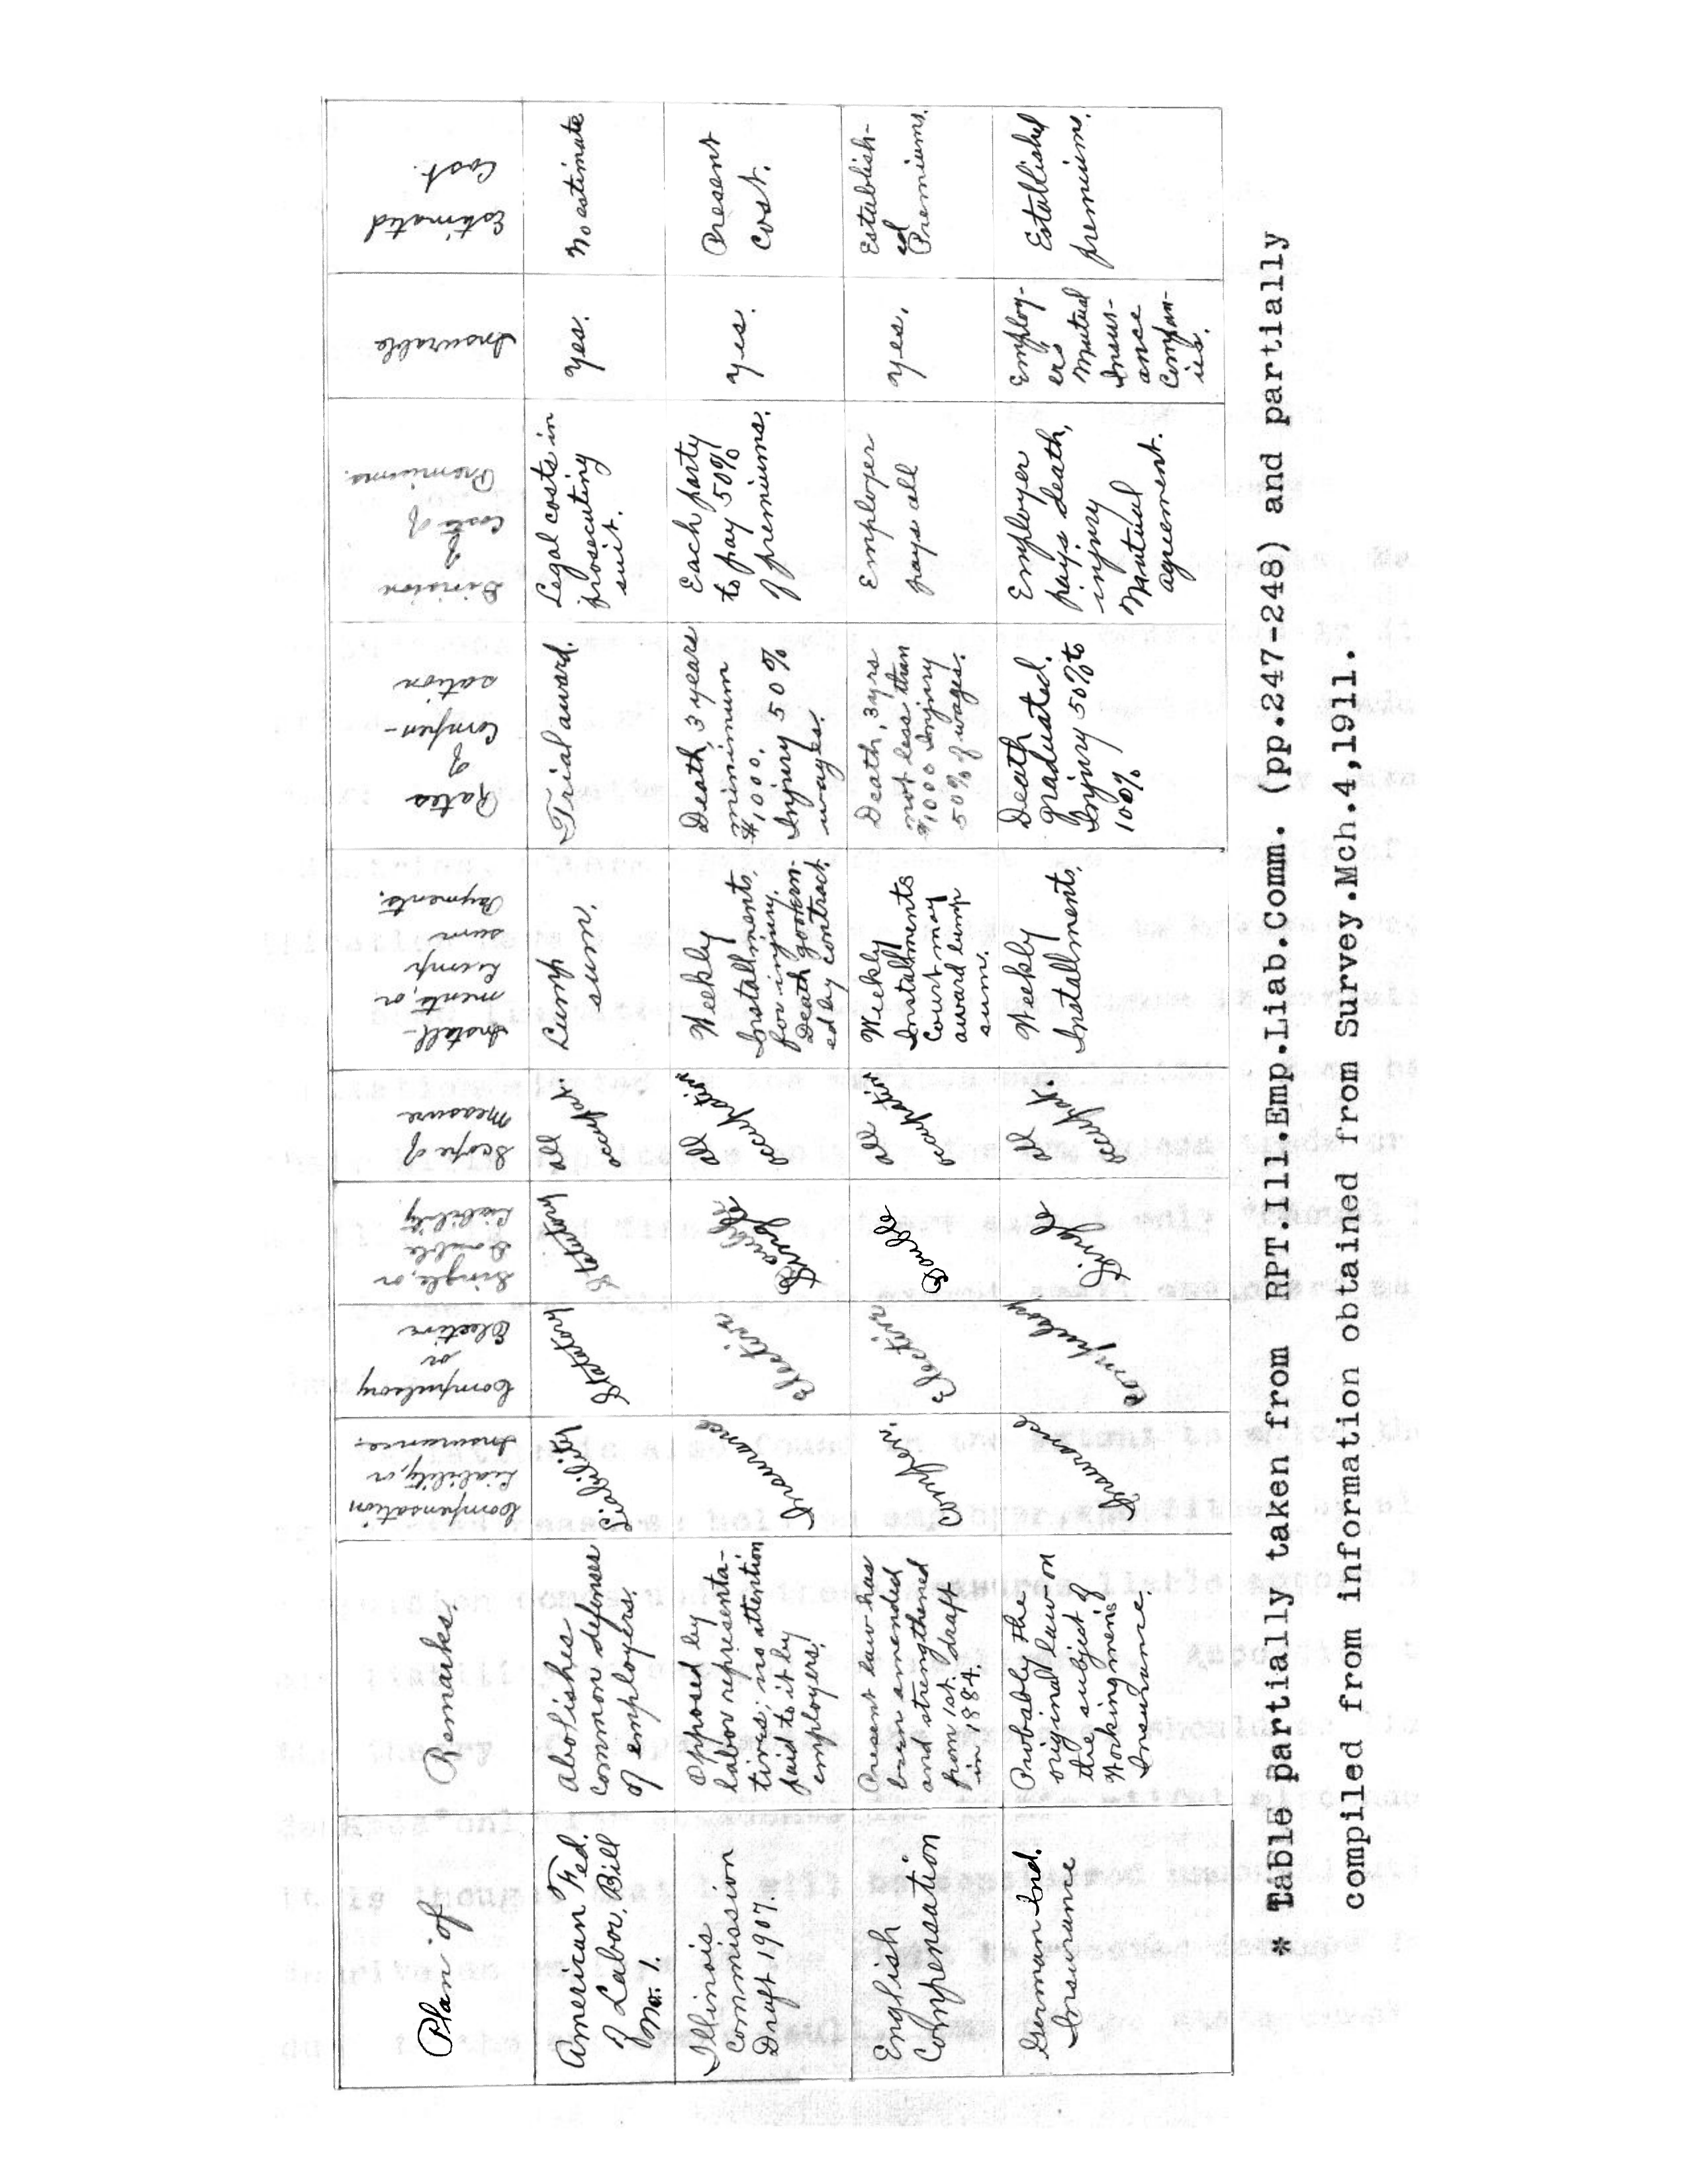 Plan of
Remarks.
Compensation
Liability, or
Insurance.
Compulsory
or
Elective
Single, or
Double
Liability
Scope of
Measure
Install-
ments, or
Lump
sum
Payments.
Rates
of
Compen-
sation
Division
of
Costs of
Premiums.
Insurable
Estimated
Cost.
American Fed.
of Labor, Bill
No. 1.
Abolishes
common defenses
of employers.
Liability
Statatory
Statatory
All
occupat.
Lump
sum.
Trial award.
Legal costs in
prosecuting
suit.
Yes.
No estimate
Illinois
Commission
Draft 1907.
Opposed by
labor representa-
tives; no attention
paid to it by
employers.
Insurance
Elective
Double
Single
All
occupation
Weekly
Installments,
for injury.
Death govern-
ed by contract.
Death, 3 years
minimum
$1,000.
Injury 50%
wages.
Each party
to pay 50%
of premiums.
Yes.
Present
Cost.
English
Compensation
Present law has
been amended
and strengthened
from 1st. draft
in 1884.
Compen.
Elective
Double
All
occupation
Weekly
Installments
Court may
award lump
sum.
Death, 3 yrs
not less than
$1,000 Injury
50% of wages.
Employer
pays all
Yes.
Establish-
ed
Premiums.
German Ind.
Insurance
Probably the
original law on
the subject of
Workingmen's
Insurance.
Insurance
Compulsory
Single
All
occupat.
Weekly
Installments.
Death
graduated.
Injury 50% to
100%
Employer
pays death,
injury
Mutual
agreement.
Employ-
ers
Mutual
Insur-
ance
Compan-
ies.
Established
premiums.
* Table partially taken from RPT.Ill.Emp.Liab.Comm. (pp.247-248) and partially
compiled from information obtained from Survey.Mch.4,1911.